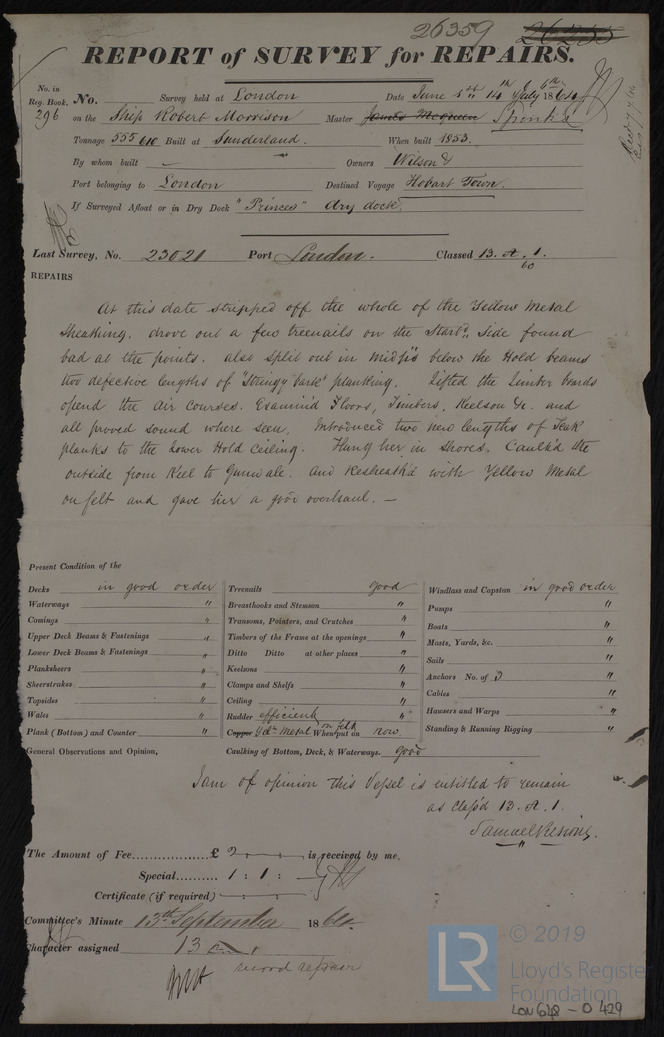 26359
REPORT of SURVEY for REPAIRS.
No. in Reg. Book, No. Survey held at London Date June 1st 14th July 6th 1864
296 on the Ship Robert Morrison Master James Mcqueen Spinks
Tonnage 555 610 Built at Sunderland. When built 1853.
By whom built — Owners Wilson &
Port belonging to London Destined Voyage Hobart Town.
If Surveyed Afloat or in Dry Dock "Princes" dry dock.
Last Survey, No. 23021 Port London. Classed 13. A. 1.
60
REPAIRS
At this date stripped off the whole of the Yellow Metal
Sheathing. drove out a few treenails on the Starbd. side found
bad at the points. also split out in Midsps below the Hold beams
two defective lengths of "Stringy bark" planking. Lifted the Limber boards
opend the Air Courses. Examin'd Floors, Timbers, Keelson &c. and
all proved sound where seen, Introduced two new lengths of Teak
planks to the Lower Hold Ceiling. Hung her in shores. Caulk'd the
outside from Keel to Gunwale. and Resheath'd with Yellow Metal
on felt and gave her a good overhaul. —
Present Condition of the
Decks in good order
Waterways "
Comings "
Upper Deck Beams & Fastenings "
Lower Deck Beams & Fastenings "
Planksheers "
Sheerstrakes "
Topsides "
Wales "
Plank (Bottom) and Counter "
Treenails good
Breasthooks and Stemson "
Transoms, Pointers, and Crutches "
Timbers of the Frame at the openings "
Ditto Ditto at other places "
Keelsons "
Clamps and Shelfs "
Ceiling "
Rudder efficient "
Copper Yelr Metal on felt When put on now.
Windlass and Capstan in good order
Pumps "
Boats "
Masts, Yards, &c. "
Sails "
Anchors No. of 5 "
Cables "
Hawsers and Warps "
Standing & Running Rigging "
General Observations and Opinion, Caulking of Bottom, Deck, & Waterways. good
I am of opinion this Vessel is entitled to remain
as Class'd 13. A. 1.
Samuel
The Amount of Fee £ 2 is received by me,
Special 1 : 1 :
Certificate (if required)
Committee's Minute 13th September 1864.
Character assigned 13 A 1
record repair
© 2019
LR
Lloyd's Register
Foundation
LON 648 - 0429